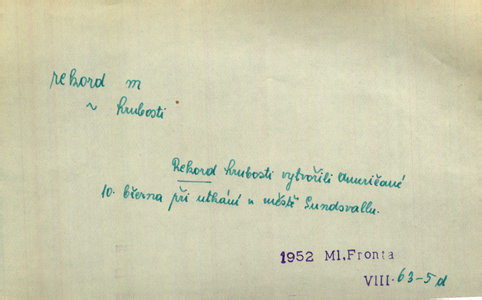 rekord m
~ hrubosti
Rekord hrubosti vytvořili Američané
10. března při utkání v městě Sundsvallu.
1952 Ml.Fronta
VIII. 63-5 d